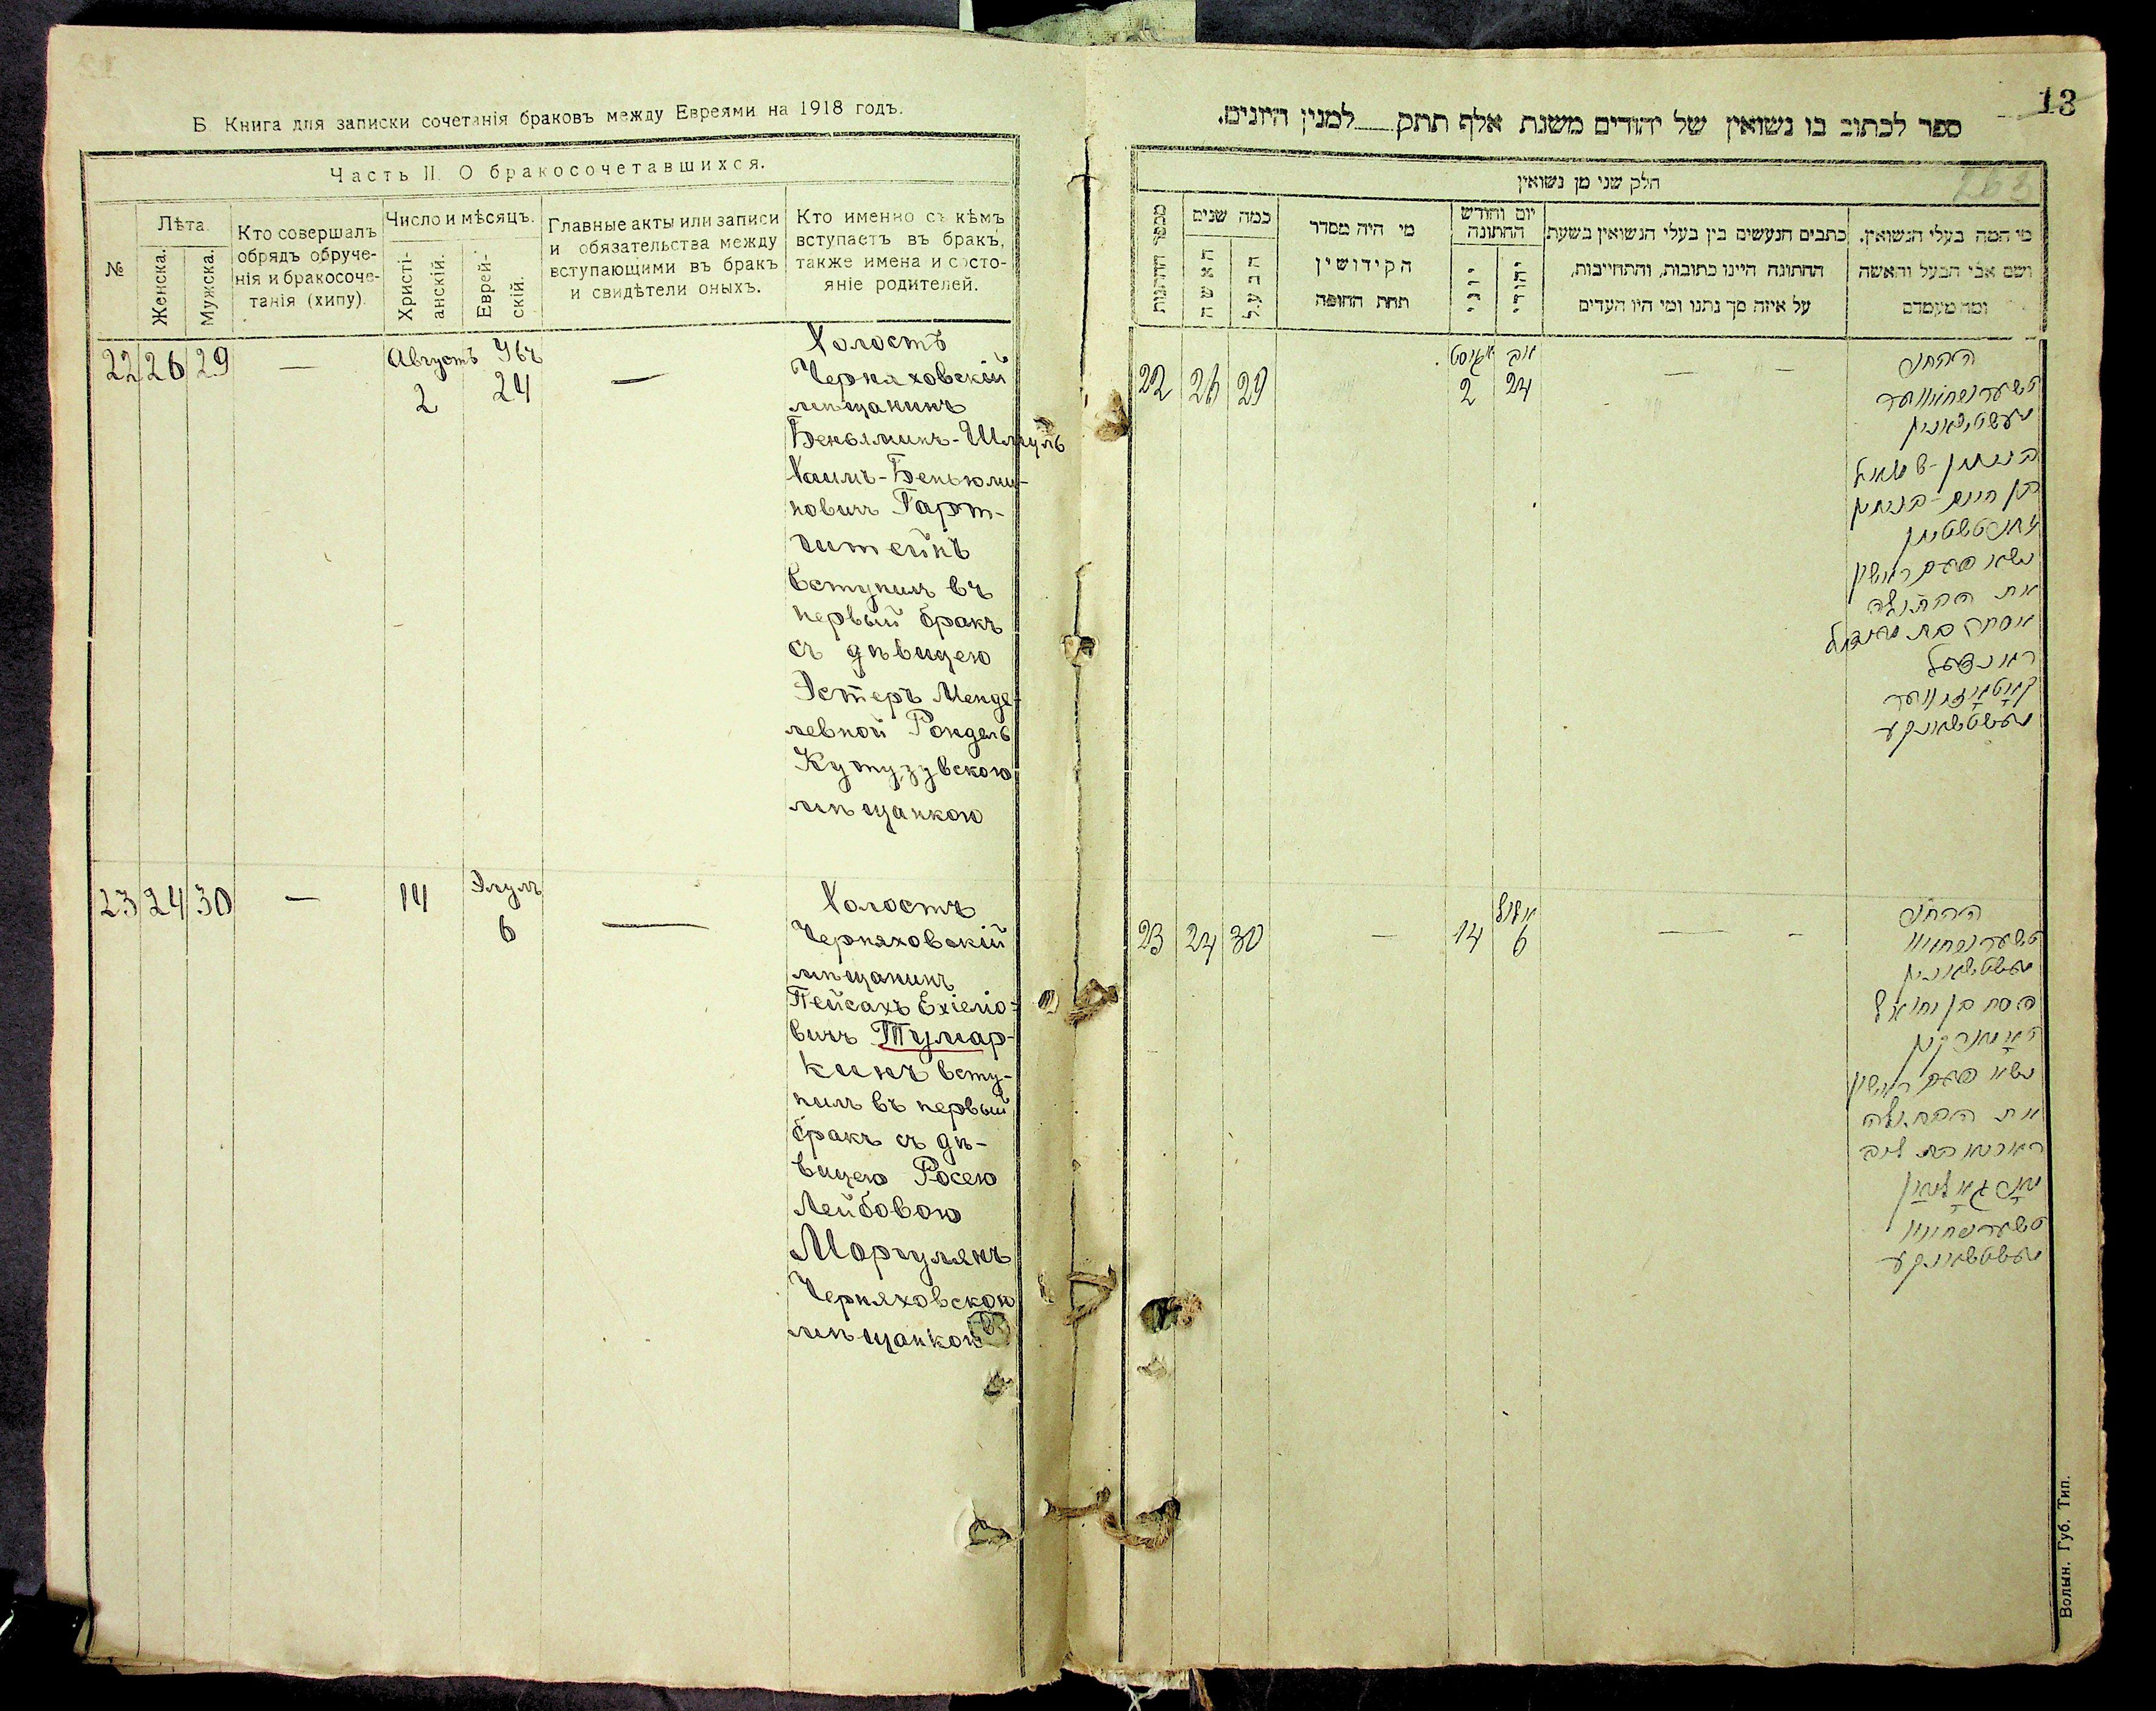 Б. Книга для записки сочетанія браковъ между Евреями на 1918 годъ.
Часть II. О бракосочетавшихся.
№
Лѣта.
Женска.
Мужска.
Кто совершалъ
обрядъ обруче-
нія и бракосоче-
танія (хипу).
Число и мѣсяцъ.
Христі-
анскій.
Еврей-
скій.
Главные акты или записи
и обязательства между
вступающими въ бракъ
и свидѣтели оныхъ.
Кто именно съ кѣмъ
вступаетъ въ бракъ,
также имена и состо-
яніе родителей.
22 26 29 — Августъ 2 24 —
Холостъ
Черняховскій
мѣщанинъ
Беньяминъ-Шмуль
Хаимъ-Беньюми-
новичъ Гарт-
штейнъ
вступилъ въ
первый бракъ
съ дѣвицею
Эстеръ Менде-
левной Рондель
Кутузувскою
мѣщанкою
23 24 30 — 14 Элулъ 6 —
Холостъ
Черняховскій
мѣщанинъ
Пейсахъ Ехіеліо-
вичъ Тумар-
кинъ всту-
пилъ въ первый
бракъ съ дѣ-
вицею Росею
Лейбовою
Моргулянъ
Черняховскою
мѣщанкою
13
ספר לכתוב בו נשואין של יהודים משנת אלף תתק למנין היונים.
חלק שני מן נשואין
מספר החתונות
כמה שנים
האשה
הבעל
מי היה מסדר
הקידושין
תחת החופה
יום וחודש
החתונה
יוני
יהודי
כתבים הנעשים בין בעלי הנשואין בשעת
החתונה היינו כתובות, והתחייבות,
על איזה סך נתנו ומי היו העדים
מי המה בעלי הנשואין.
ושם אבי הבעל והאשה
ומה מעמדם
22 26 29 אוגוסט 2 אב 24 — —
הבחור
בנימין-שמואל
בן חיים-בנימין
נשא פעם ראשון
את הבתולה
23 24 30 — 14 אלול 6 — —
הבחור
פסח בן יחיאל
נשא פעם ראשון
את הבתולה
Волын. Губ. Тип.